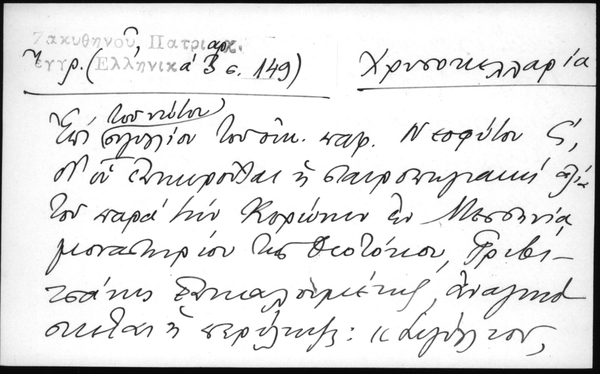 Ζακυθηνοῦ, Πατριαρχ.
ἔγγρ. (Ἑλληνικά 3 σ. 149)
Χρυσοκελλαρία
Ἐπὶ τοῦ νώτου
σιγιλλίου τοῦ οἰκ. πατρ. Νεοφύτου Ϛ΄,
δι' οὗ ἐπικυροῦται ἡ σταυροπηγιακὴ ἀξία
τοῦ παρὰ τὴν Κορώνην ἐν Μεσσηνίᾳ
μοναστηρίου τῆς Θεοτόκου, Γριβι-
τσάνης ἐπικαλουμένης, ἀναγινώ
σκεται ἡ περίληψις: